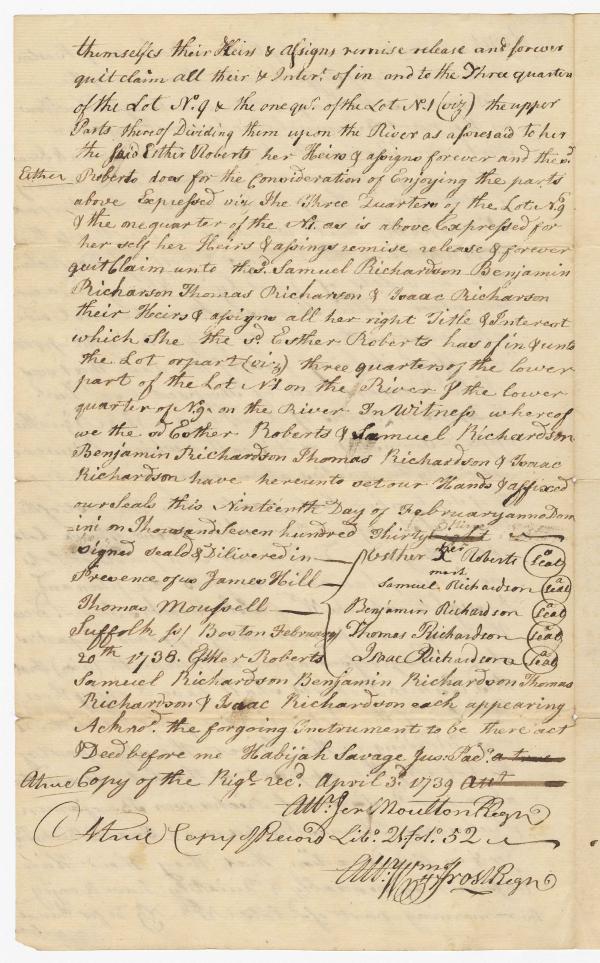 themselfes their Heirs & assigns remise release and forever
quit claim all their & Inter.t of in and to the Three quarters
of the Lot No. 9 & the one qu.r of the Lot N.1 (viz) the upper
Parts thereof Dividing them upon the River as aforesaid to her
the said Esther Roberts her Heirs & assigns forever and the sd
Esther Roberts does for the Consideration of Enjoying the parts
above Expressed viz The Three Quarters of the Lot No. 9
& the one quarter of the N1. as is above Expressed for
her self her Heirs & assings remise release & forever
quit Claim unto the sd. Samuel Richardson Benjamin
Richarson Thomas Richarson & Isaac Richarson
their Heirs & assigns all her right Title & Interest
which She the sd. Esther Roberts has of in & unto
the Lot or part (viz) three quarters of the lower
part of the Lot N1 on the River & the lower
quarter of No. 9 on the River In Witness whereof
we the sd Esther Roberts & Samuel Richardson
Benjamin Richardson Thomas Richardson & Isaac
Richardson have hereunto set our Hands & affixed
our seals this Ninteenth Day of February anno Dom
=ini on Thousand Seven hundred Thirty
Signed seald & dilivered in Esther her X mark Roberts (seal)
Presence of us James Hill Samuel Richardson (seal)
Thomas Moussell Benjamin Richardson (seal)
Suffolk ss/ Boston February Thomas Richardson (seal)
20th 1738. Esther Roberts Isaac Richardson (seal)
Samuel Richardson Benjamin Richardson Thomas
Richardson & Isaac Richardson each appearing
Acknod. the forgoing Instrument to be there act
& Deed before me Habijah Savage Jus: Pad.s a true
A true Copy of the Rigl. recd. April 3d 1739 Att
Attr. Jer Moulton Regr
A true Copy of Record Libo. 21 fo. 52
Attr. Wm Frost Regr